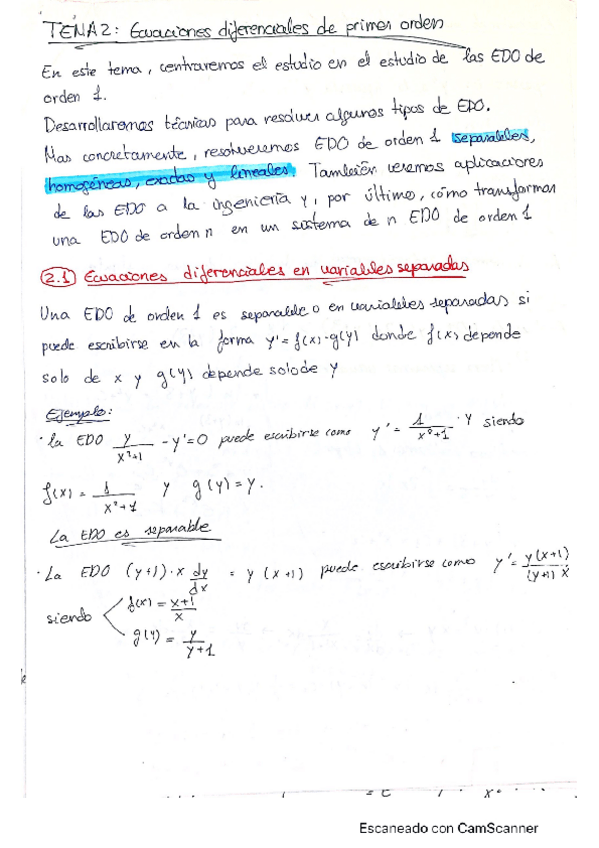 TEMA 2: Ecuaciones diferenciales de primer orden
En este tema, centraremos el estudio en el estudio de las EDO de
orden 1.
Desarrollaremos técnicas para resolver algunos tipos de EDO.
Mas concretamente, resolveremos EDO de orden 1 separables,
homogéneas, exactas y lineales. También veremos aplicaciones
de las EDO a la ingeniería y, por último, cómo transformar
una EDO de orden n en un sistema de n EDO de orden 1
2.1 Ecuaciones diferenciales en variables separadas
Una EDO de orden 1 es separable o en variables separadas si
puede escribirse en la forma y' = f(x)·g(y) donde f(x) depende
solo de x y g(y) depende solo de y
Ejemplo:
· La EDO y/(x²+1) - y' = 0 puede escribirse como y' = 1/(x²+1) · y siendo
f(x) = 1/(x²+1) y g(y) = y.
La EDO es separable
· La EDO (y+1)·x dy/dx = y(x+1) puede escribirse como y' = y(x+1)/((y+1)x)
siendo f(x) = (x+1)/x
g(y) = y/(y+1)
Escaneado con CamScanner